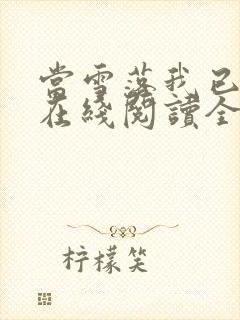 當雪落我已
在綫閱讀全
柠檬笑